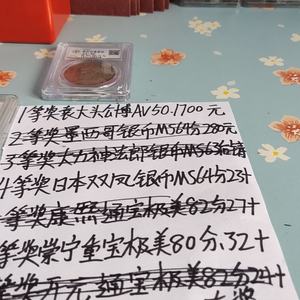 1等奖袁大头公博AV50.1700元
2等奖墨西哥银币MS64分280元
3等奖大力神法郎银币MS63
4等奖日本双凤银币MS64分23
等奖康熙通宝极美82分27
等奖崇宁重宝极美80分.32
等奖开元通宝极美82分24